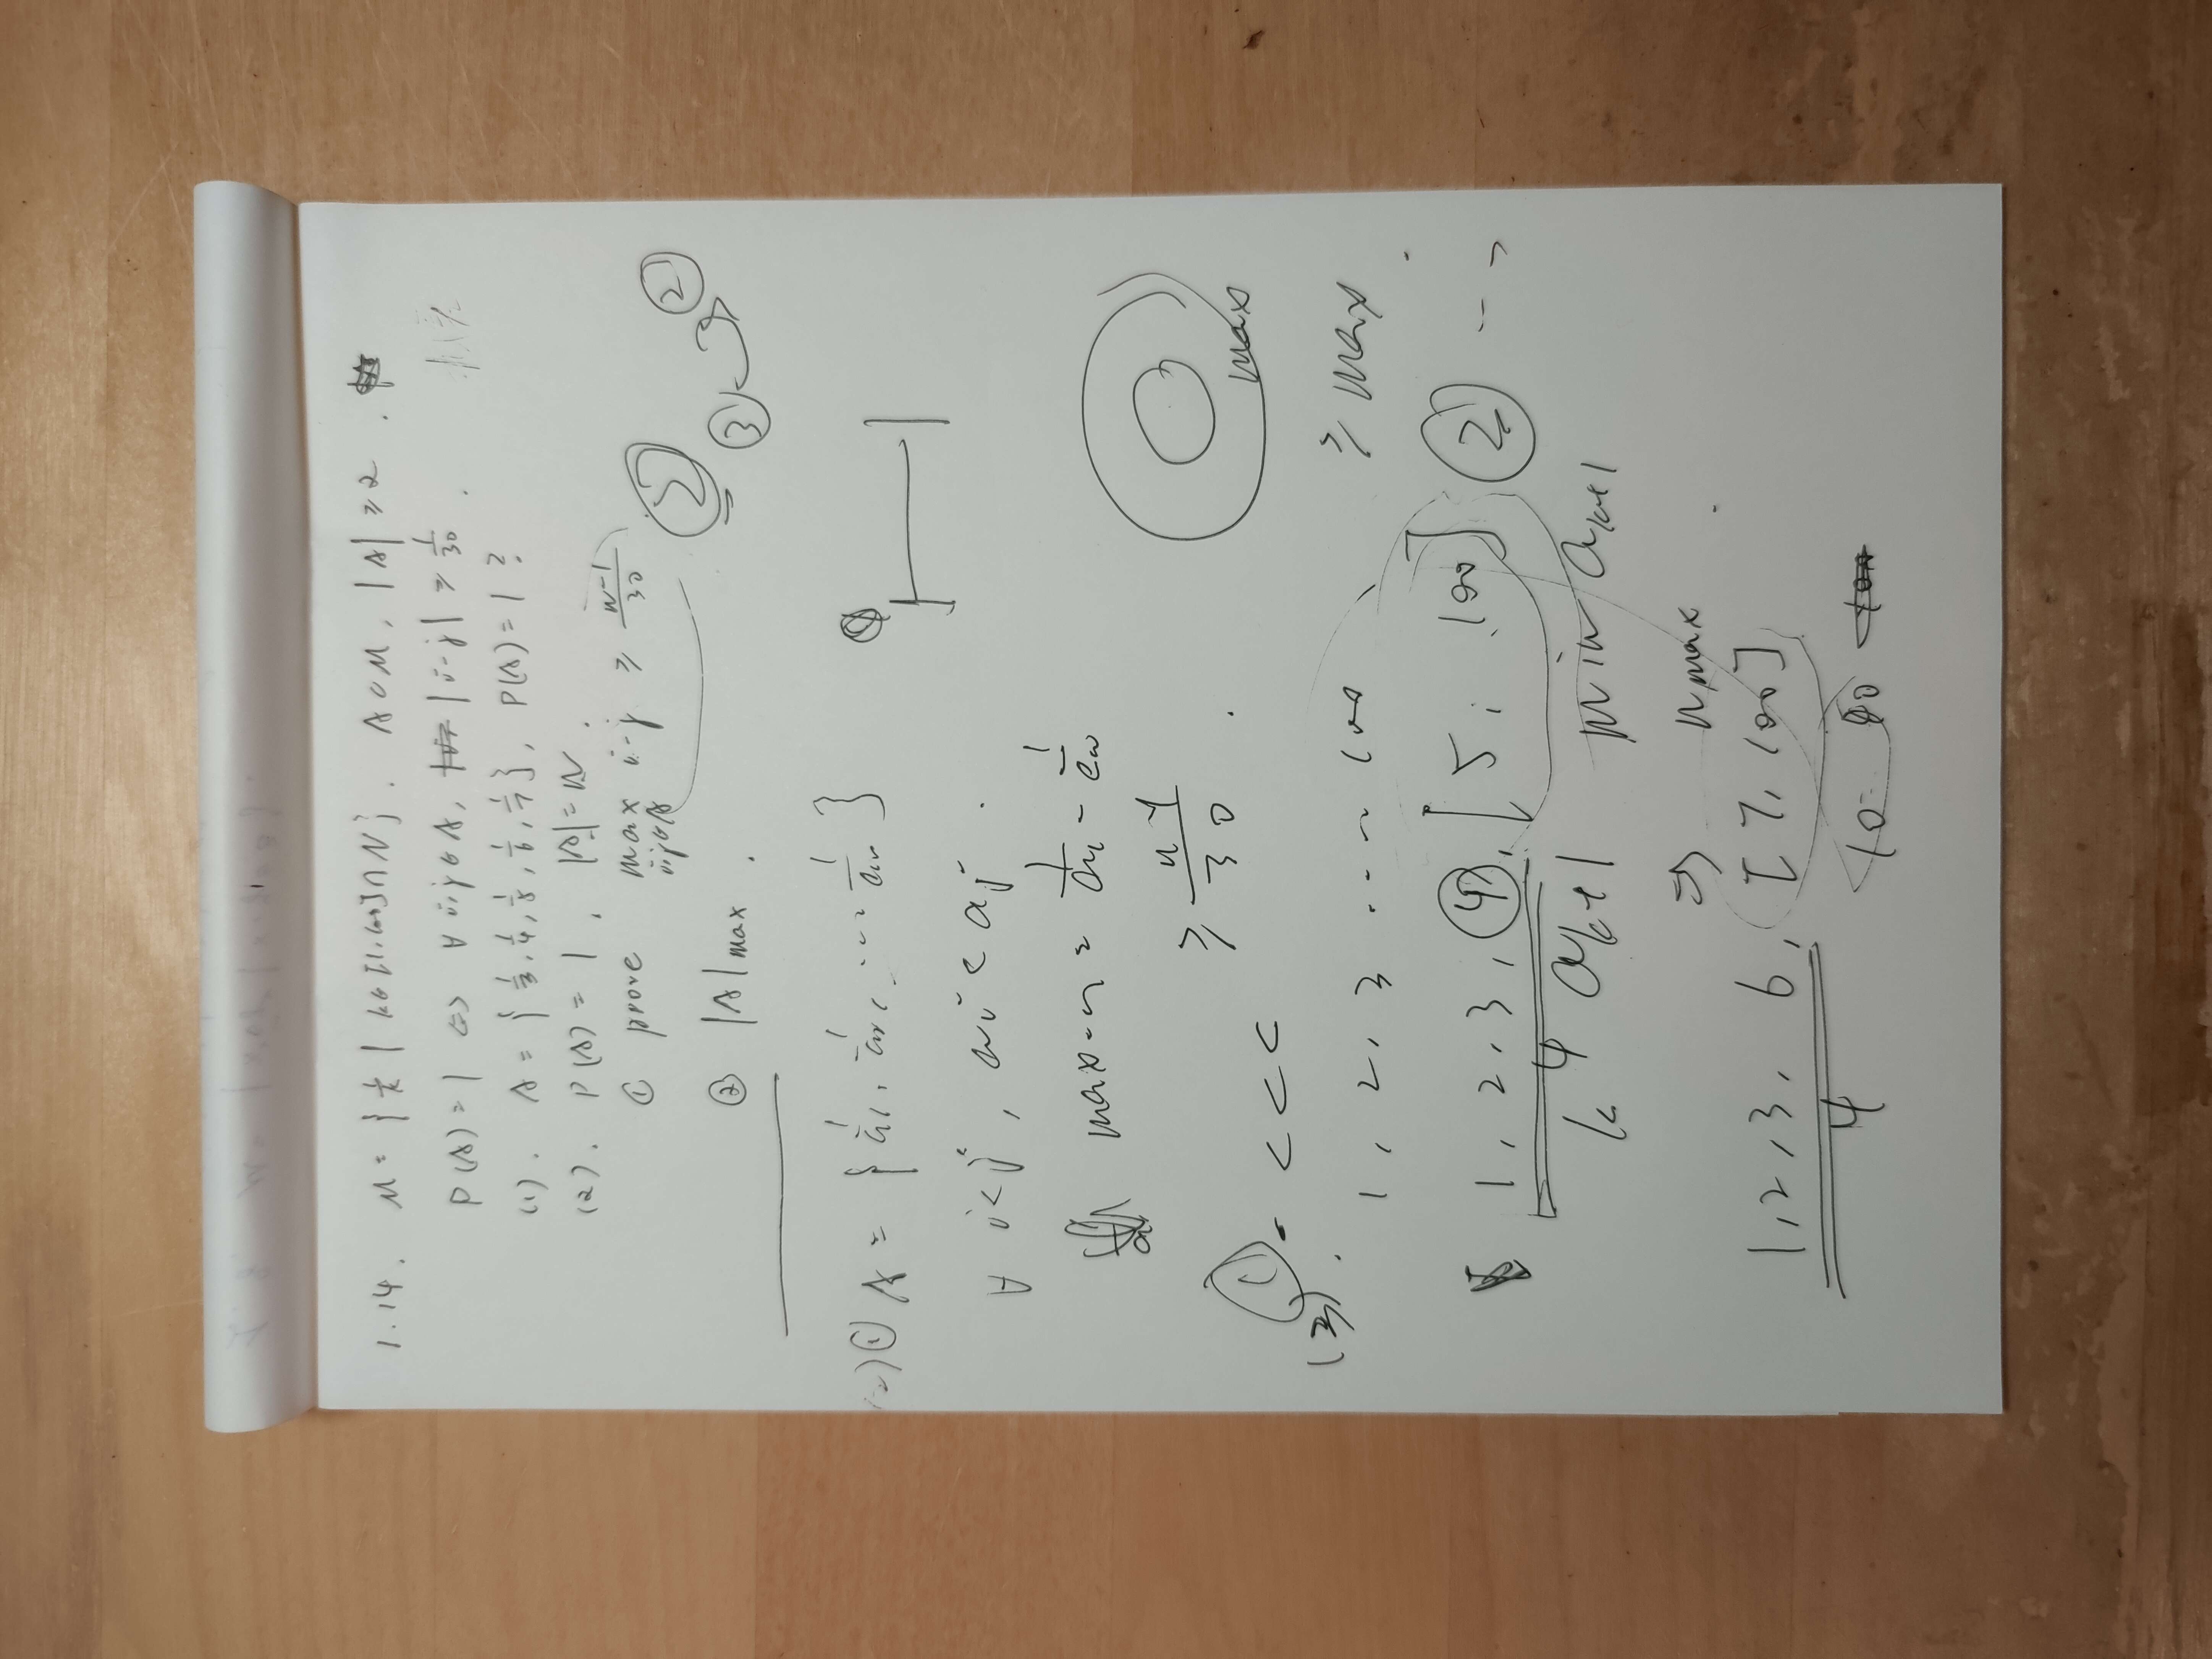 1.14. M = { 1/k | k∈[1,100]∩N }. A⊂M, |A| ≥ 2.
P(A)=1 ⇔ ∀ i,j∈A, |i-j| ≥ 1/30.
(1). A = { 1/3, 1/4, 1/5, 1/6, 1/7 }, P(A)=1 ?
(2). P(A) = 1, |A|=n.
① prove max i-j ≥ (n-1)/30
i,j∈A
② |A|max.
②
③ ②
2) ① A = { 1/a1, 1/a2, ... 1/an }
∀ i<j, ai < aj.
max-m = 1/a1 - 1/an
≥ (n-1)/30.
max
① < < <
(3).
1, 2, 3 ... 100
≥ max.
1, 2, 3, ④, [5, 100] ②
4
k ak+1 min ak+1
⇒ nmax
1, 2, 3, 6, [7, 100]
4
10